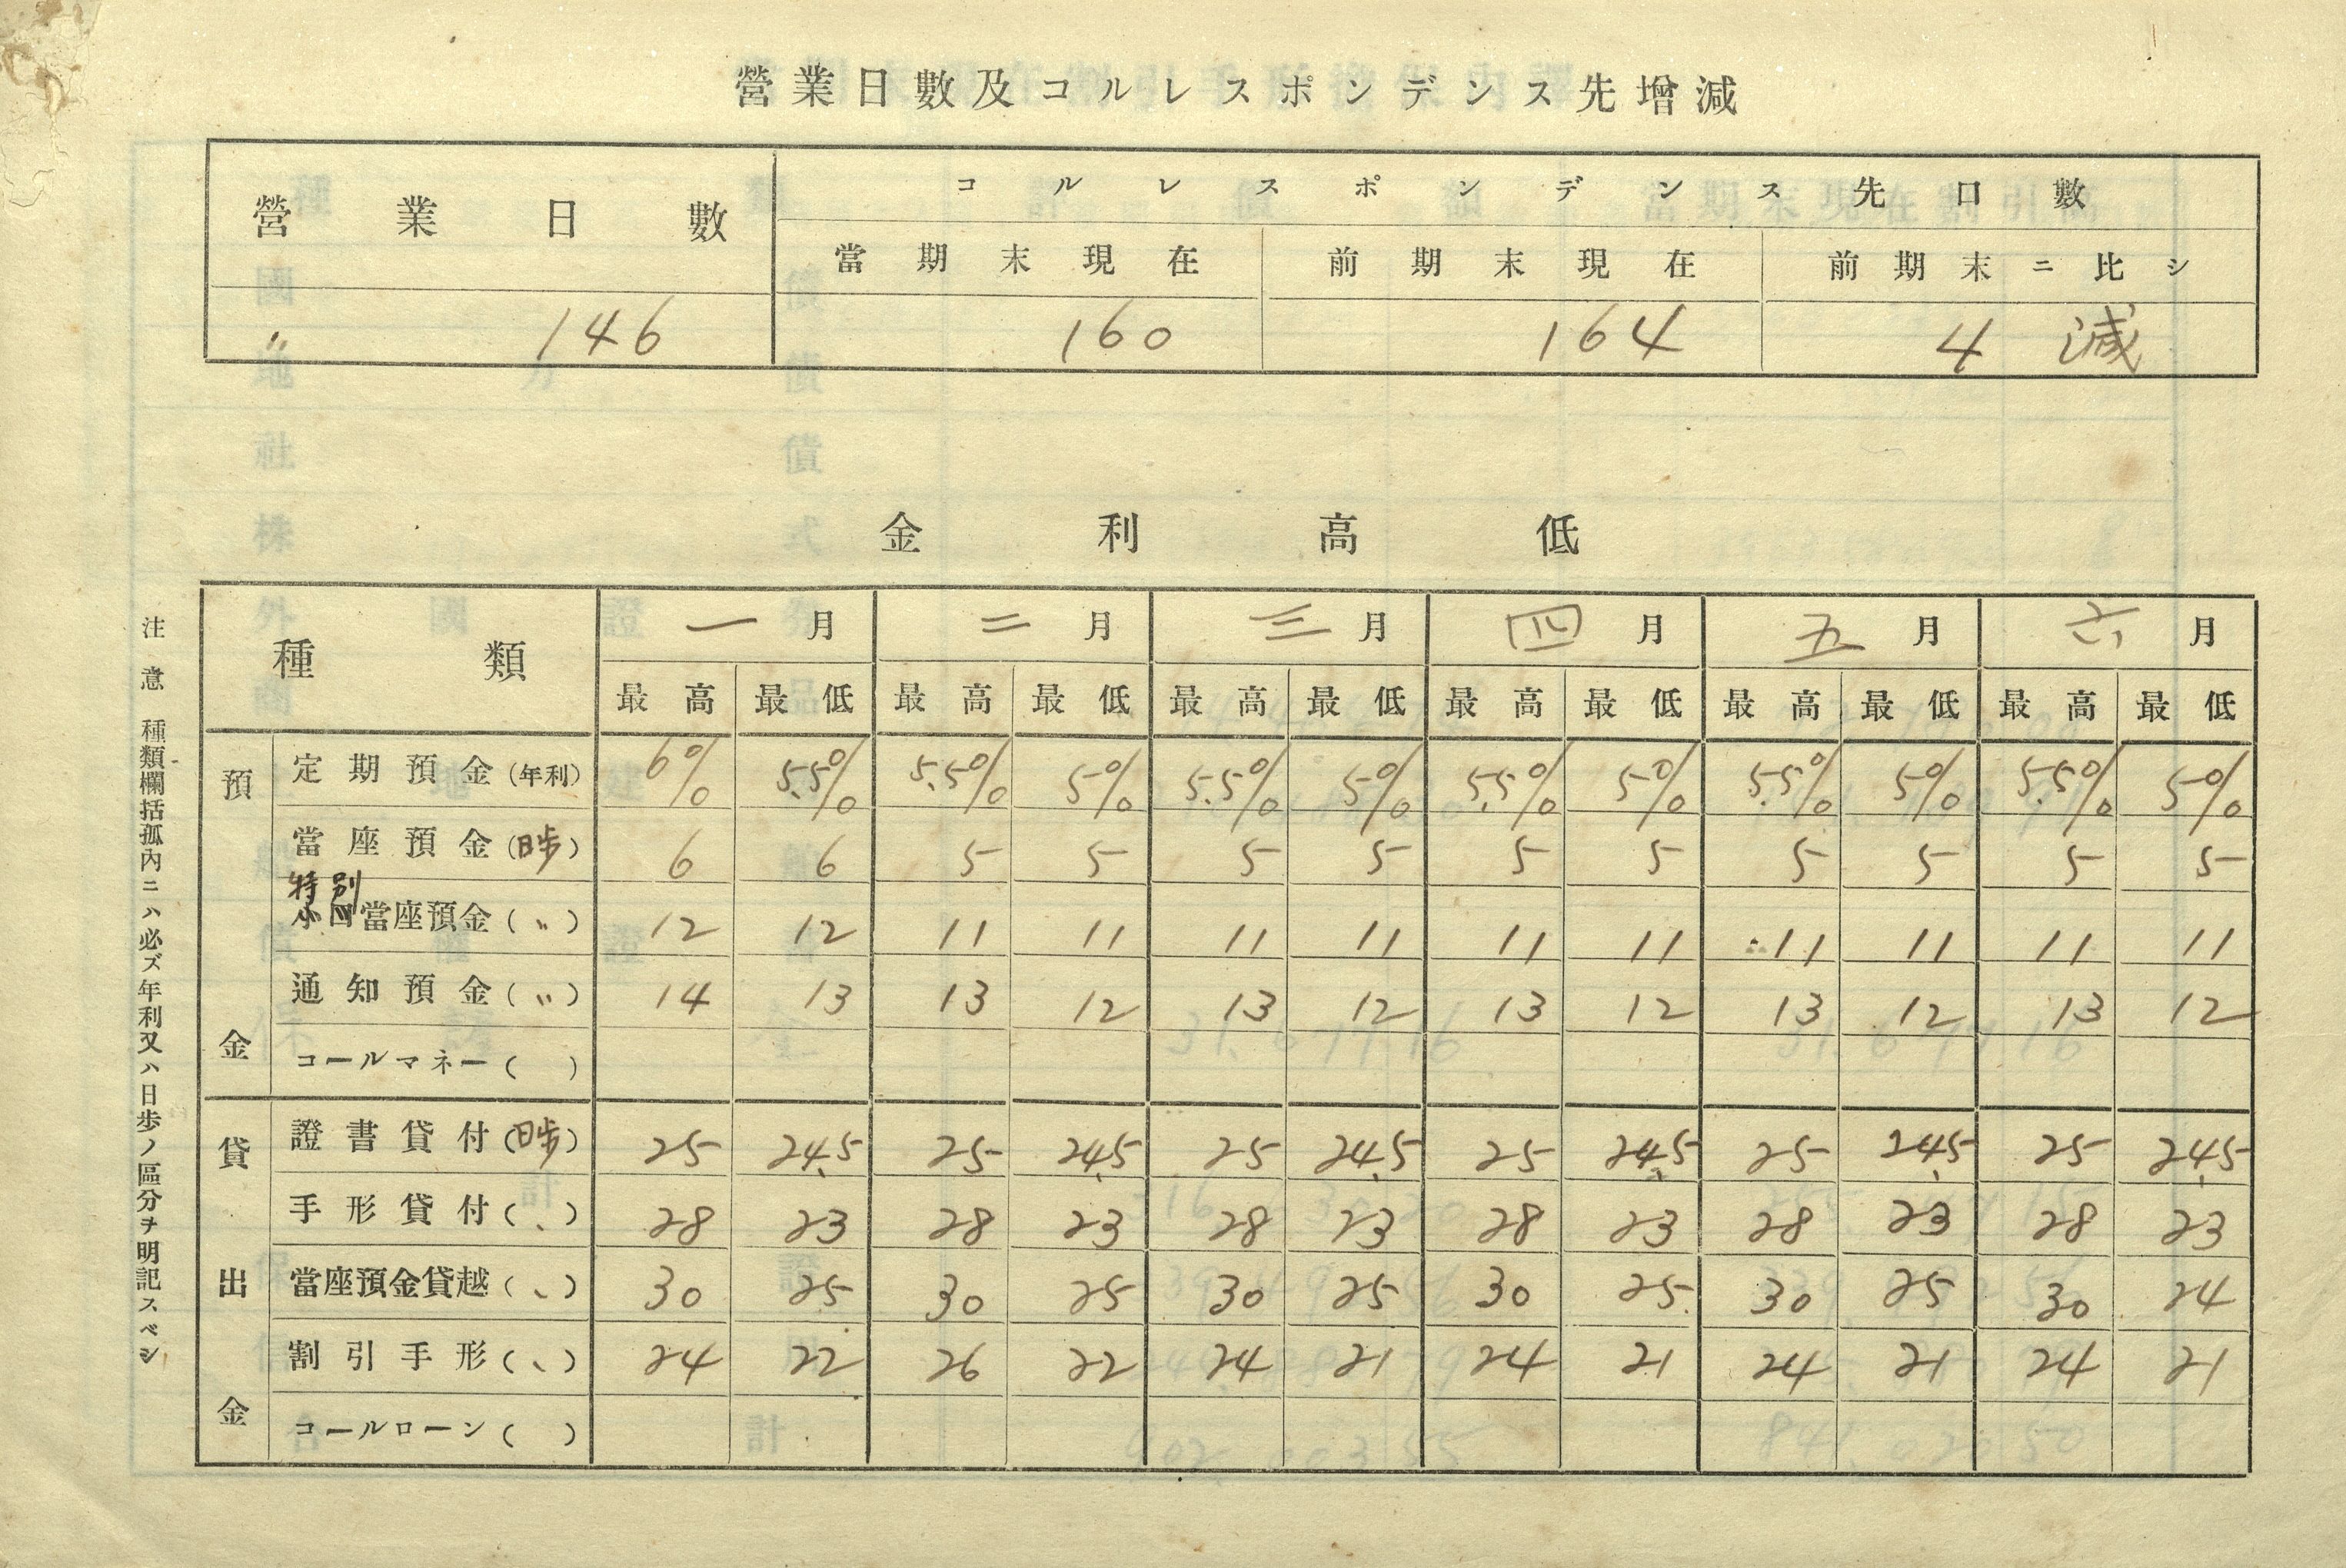 營業日數及コルレスポンデンス先增減
營業日數 コルレスポンデンス先口數
當期末現在 前期末現在 前期末ニ比シ
〃 146 160 164 4 減
金利高低
種類 一月 二月 三月 四月 五月 六月
最高 最低 最高 最低 最高 最低 最高 最低 最高 最低 最高 最低
預金
定期預金(年利) 6% 5.5% 5.5% 5% 5.5% 5% 5.5% 5% 5.5% 5% 5.5% 5%
當座預金(日歩) 6 6 5 5 5 5 5 5 5 5 5 5
特別
小口當座預金(〃) 12 12 11 11 11 11 11 11 11 11 11 11
通知預金(〃) 14 13 13 12 13 12 13 12 13 12 13 12
コールマネー( )
貸出金
證書貸付(日歩) 25 24.5 25 24.5 25 24.5 25 24.5 25 24.5 25 24.5
手形貸付(、) 28 23 28 23 28 23 28 23 28 23 28 23
當座預金貸越(、) 30 25 30 25 30 25 30 25 30 25 30 24
割引手形(、) 24 22 26 22 24 21 24 21 24 21 24 21
コールローン( )
注意 種類欄括孤內ニハ必ズ年利又ハ日歩ノ區分ヲ明記スベシ